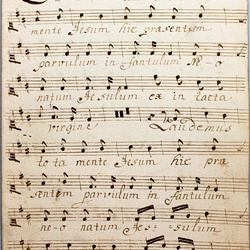 mente Jesum hic præsentem
parvulum infantulum Ne-o
natum Jesulum ex intacta
Virgine Laudemus
tota mente Jesum hic præ
sentem parvulum infantulum
ne-o natum Jes=sulum